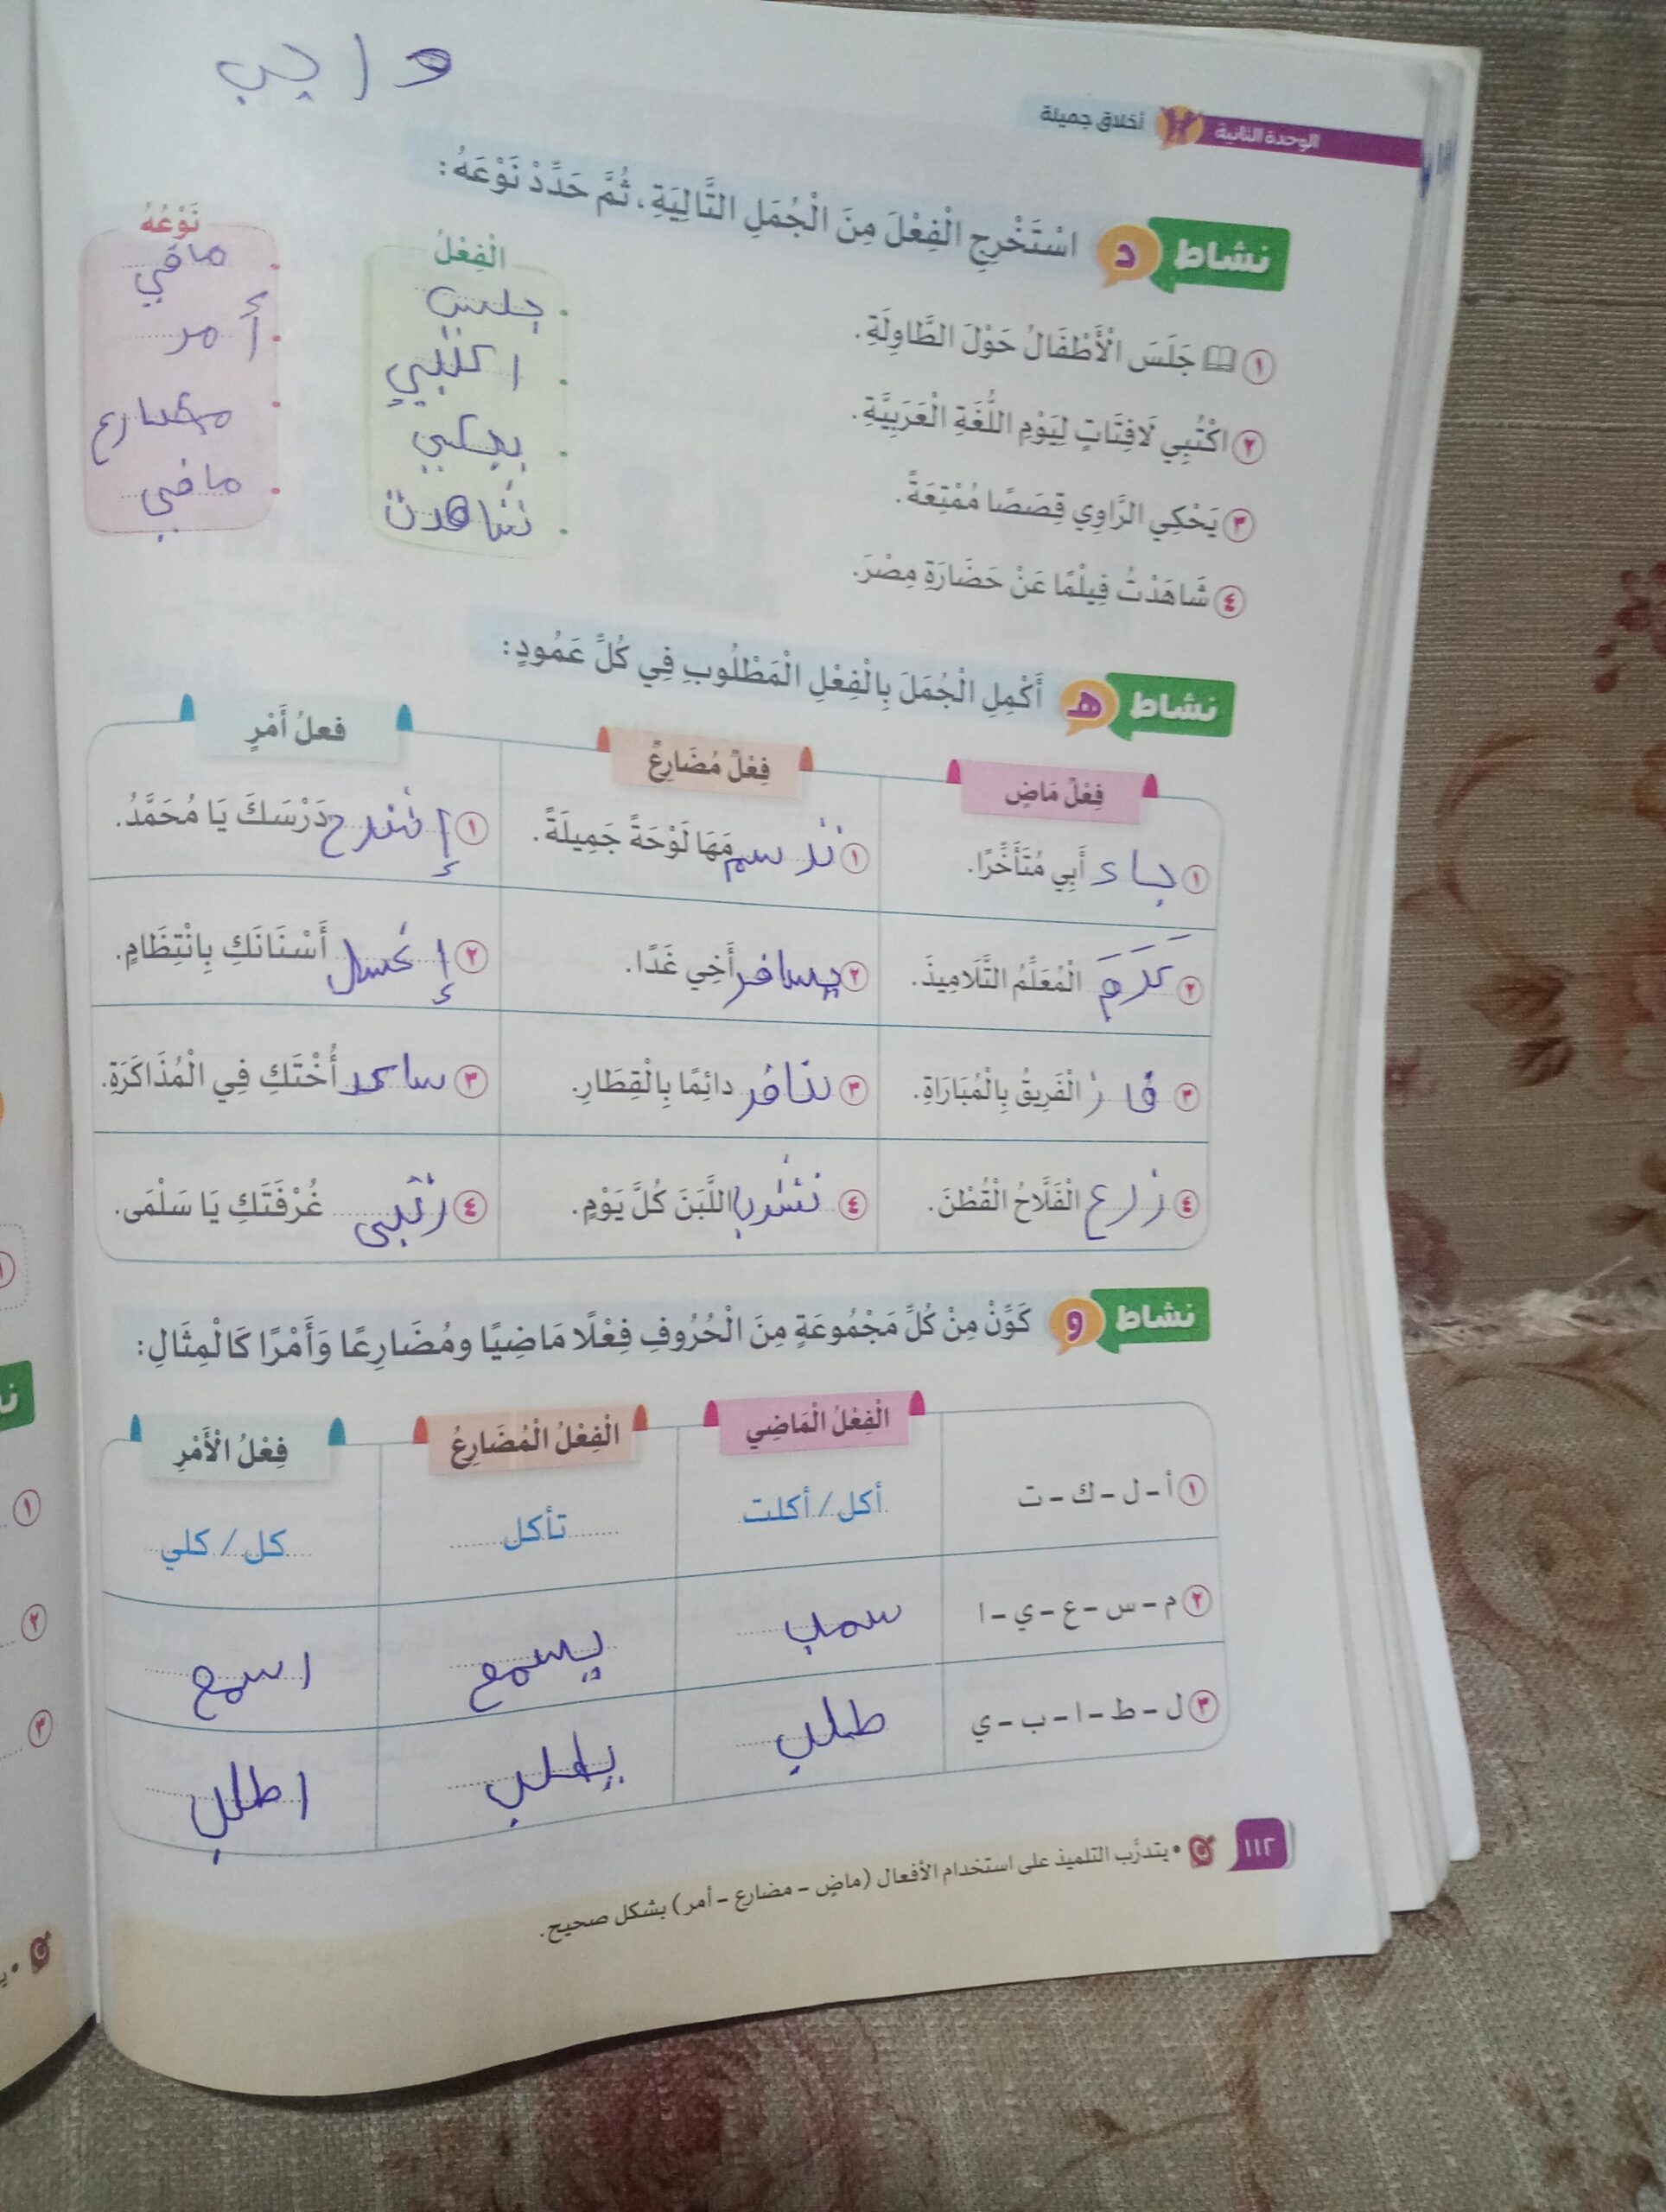 واجب
الوحدة الثانية ٢ أخلاق جميلة
نشاط د اسْتَخْرِجِ الْفِعْلَ مِنَ الْجُمَلِ التَّالِيَةِ، ثُمَّ حَدِّدْ نَوْعَهُ:
الْفِعْلُ نَوْعُهُ
١ جَلَسَ الْأَطْفَالُ حَوْلَ الطَّاوِلَةِ. جلس ماضي
٢ اكْتُبِي لَافِتَاتٍ لِيَوْمِ اللُّغَةِ الْعَرَبِيَّةِ. اكتبي أمر
٣ يَحْكِي الرَّاوِي قِصَصًا مُمْتِعَةً. يحكي مضارع
٤ شَاهَدْتُ فِيلْمًا عَنْ حَضَارَةِ مِصْرَ. شاهدت ماضي
نشاط هـ أَكْمِلِ الْجُمَلَ بِالْفِعْلِ الْمَطْلُوبِ فِي كُلِّ عَمُودٍ:
فِعْلٌ مَاضٍ فِعْلٌ مُضَارِعٌ فعلُ أَمْرٍ
١ جاء أَبِي مُتَأَخِّرًا. ١ ترسم مَهَا لَوْحَةً جَمِيلَةً. ١ إشرح دَرْسَكَ يَا مُحَمَّدُ.
٢ كَرَمَ الْمُعَلِّمُ التَّلَامِيذَ. ٢ يسافر أَخِي غَدًا. ٢ إغسل أَسْنَانَكِ بِانْتِظَامٍ.
٣ فاز الْفَرِيقُ بِالْمُبَارَاةِ. ٣ دائِمًا بِالْقِطَارِ. ٣ ساعد أُخْتَكِ فِي الْمُذَاكَرَةِ.
٤ زرع الْفَلَّاحُ الْقُطْنَ. ٤ نشرب اللَّبَنَ كُلَّ يَوْمٍ. ٤ رتبى غُرْفَتَكِ يَا سَلْمَى.
نشاط و كَوِّنْ مِنْ كُلِّ مَجْمُوعَةٍ مِنَ الْحُرُوفِ فِعْلًا مَاضِيًا ومُضَارِعًا وَأَمْرًا كَالْمِثَالِ:
الْفِعْلُ الْمَاضِي الْفِعْلُ الْمُضَارِعُ فِعْلُ الْأَمْرِ
١ أ – ل – ك – ت أكل / أكلت تأكل كل / كلي
٢ م – س – ع – ي – ا يسمع اسمع
٣ ل – ط – ا – ب – ي طلب يطلب اطلب
١١٢ • يتدرَّب التلميذ على استخدام الأفعال (ماضٍ – مضارع – أمر) بشكل صحيح.